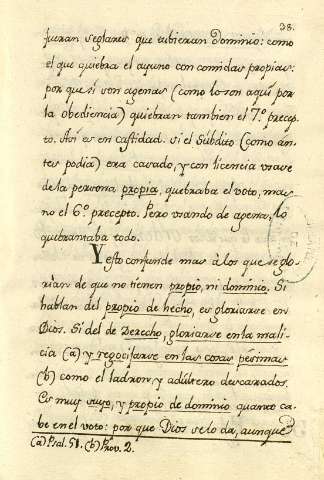 38.
fueran seglares que tubieran Dominio: como
el que quiebra el ayuno con comidas propias:
por que si son agenas (como lo son aquì por
la obediencia) quiebran tambien el 7.º precep-
to. Asì es en castidad. si el Subdito (como an-
tes podia) era casado, y con licencia usase
de la persona propia, quebraba el voto, mas
no el 6.º precepto. Pero usando de agena, lo
quebrantaba todo.
Y esto confunde mas à los que se glo-
rian de que no tienen propio, ni dominio. Si
hablan del propio de hecho, es gloriarse en
Dios. Si del de Derecho, gloriarse en la mali-
cia (a) y regocijarse en las cosas pesimas
(b) como el ladron, y adùltero descarados.
Es muy suyo, y propio de dominio quanto ca-
be en el voto: por que Dios se lo da, aunque
(a) Psal. 51. (b) Prov. 2.